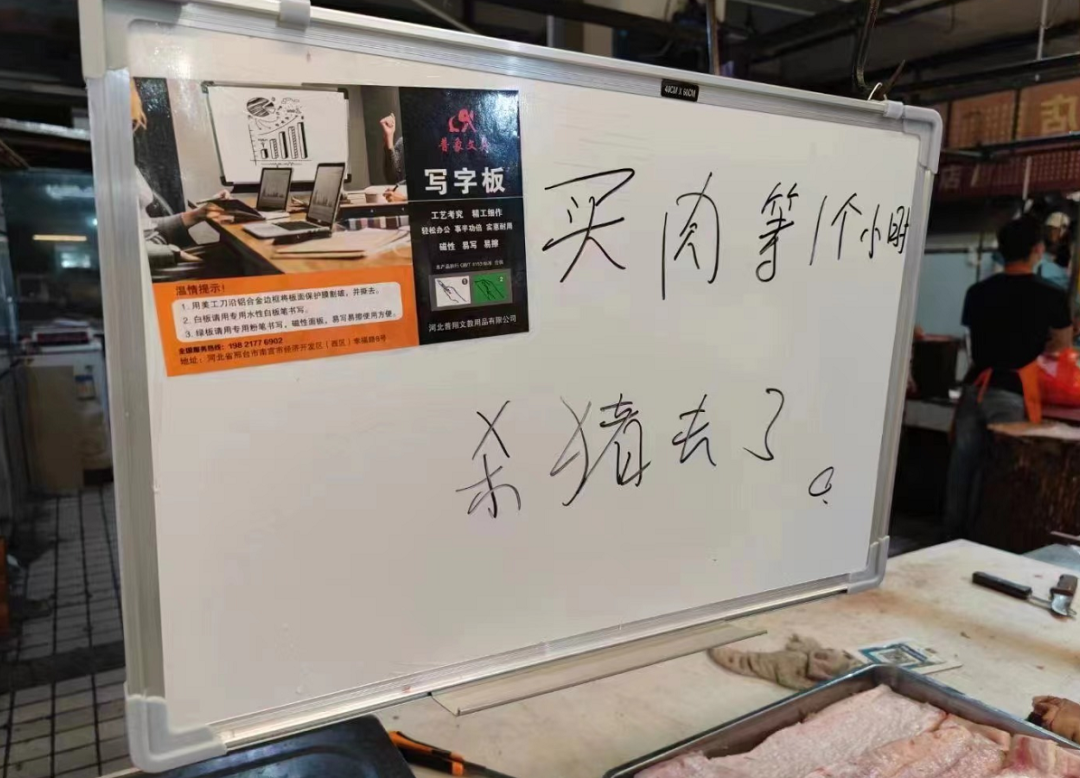 48CM X 66CM
普象文具
写字板
工艺考究 精工细作
轻松办公 事半功倍 实惠耐用
磁性 易写 易擦
河北普翔文教用品有限公司
温情提示！
1. 用美工刀沿铝合金边框将板面保护膜割破，并撕去。
2. 白板请用专用水性白板笔书写。
3. 绿板请用专用粉笔书写，磁性面板，易写易擦使用方便。
全国服务热线：198 2177 6902
地址：河北省邢台市南宫市经济开发区（西区）幸福路6号
买肉等1个小时
杀猪去了。
店
店